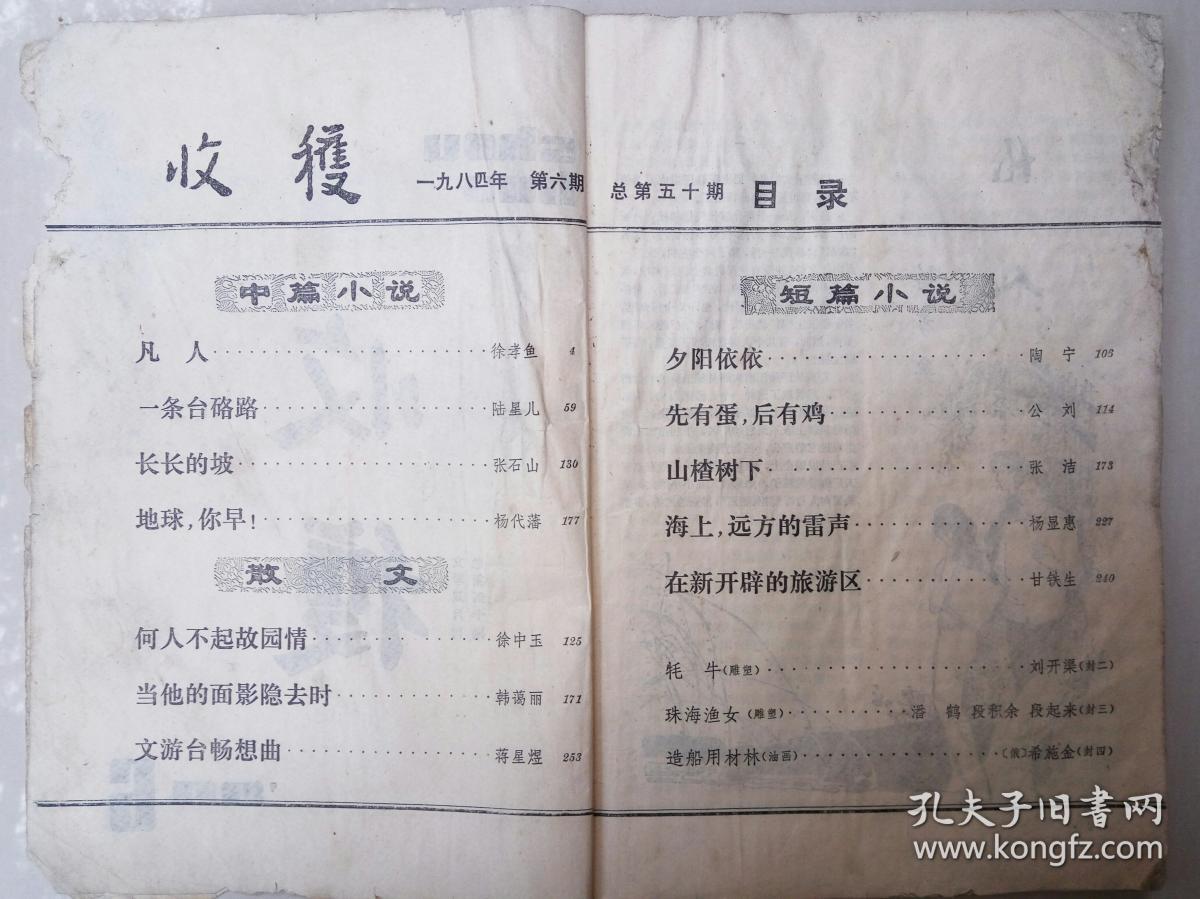 收穫 一九八四年 第六期 总第五十期 目录
中篇小说
凡 人 徐孝鱼 4
一条台硌路 陆星儿 59
长长的坡 张石山 130
地球，你早！ 杨代藩 177
散 文
何人不起故园情 徐中玉 125
当他的面影隐去时 韩蔼丽 171
文游台畅想曲 蒋星煜 253
短篇小说
夕阳依依 陶 宁 106
先有蛋，后有鸡 公 刘 114
山楂树下 张 洁 173
海上，远方的雷声 杨显惠 227
在新开辟的旅游区 甘铁生 240
牦 牛（雕塑） 刘开渠（封二）
珠海渔女（雕塑） 潘 鹤 段积余 段起来（封三）
造船用材林（油画） 〔俄〕希施金（封四）
孔夫子旧书网
www.kongfz.com